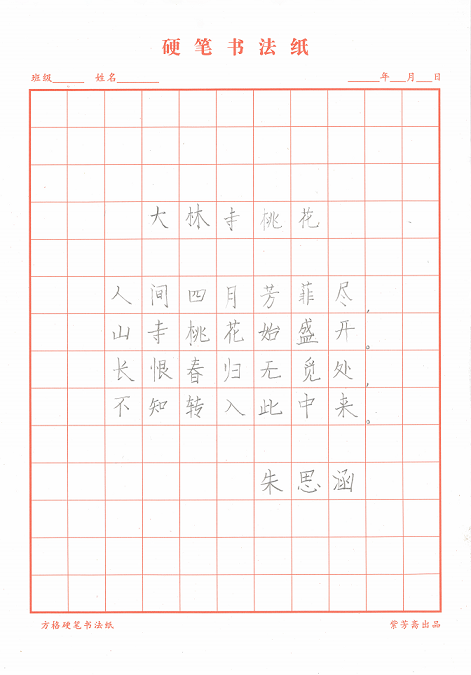 硬笔书法纸
班级______ 姓名________ ______年___月___日
大林寺桃花
人间四月芳菲尽，
山寺桃花始盛开。
长恨春归无觅处，
不知转入此中来。
朱思涵
方格硬笔书法纸 紫芳斋出品